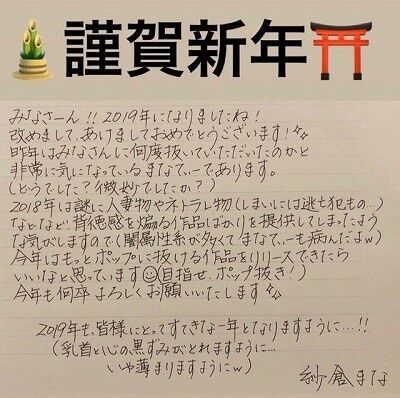 謹賀新年
みなさーん!!2019年になりましたね!
改めまして、あけましておめでとうございます!
昨年はみなさんに何度抜いていただいたのかと
非常に気になっているまなてぃーであります。
(どうでした?微妙でしたか?)
2018年は謎に人妻物やネトラレ物(しまいには逃亡犯もの…)
などなど、背徳感を煽る作品ばかりを提供してしまったよう
な気がしますので(闇属性系が多くてまなてぃーも病んだよw)
今年はもっとポップに抜ける作品をリリースできたら
いいなと思っています(目指せ、ポップ抜き!)
今年も何卒よろしくお願いいたします
2019年も、皆様にとってすてきな一年となりますように…!!
(乳首と心の黒ずみがとれますように…
いや薄まりますようにw)
紗倉まな